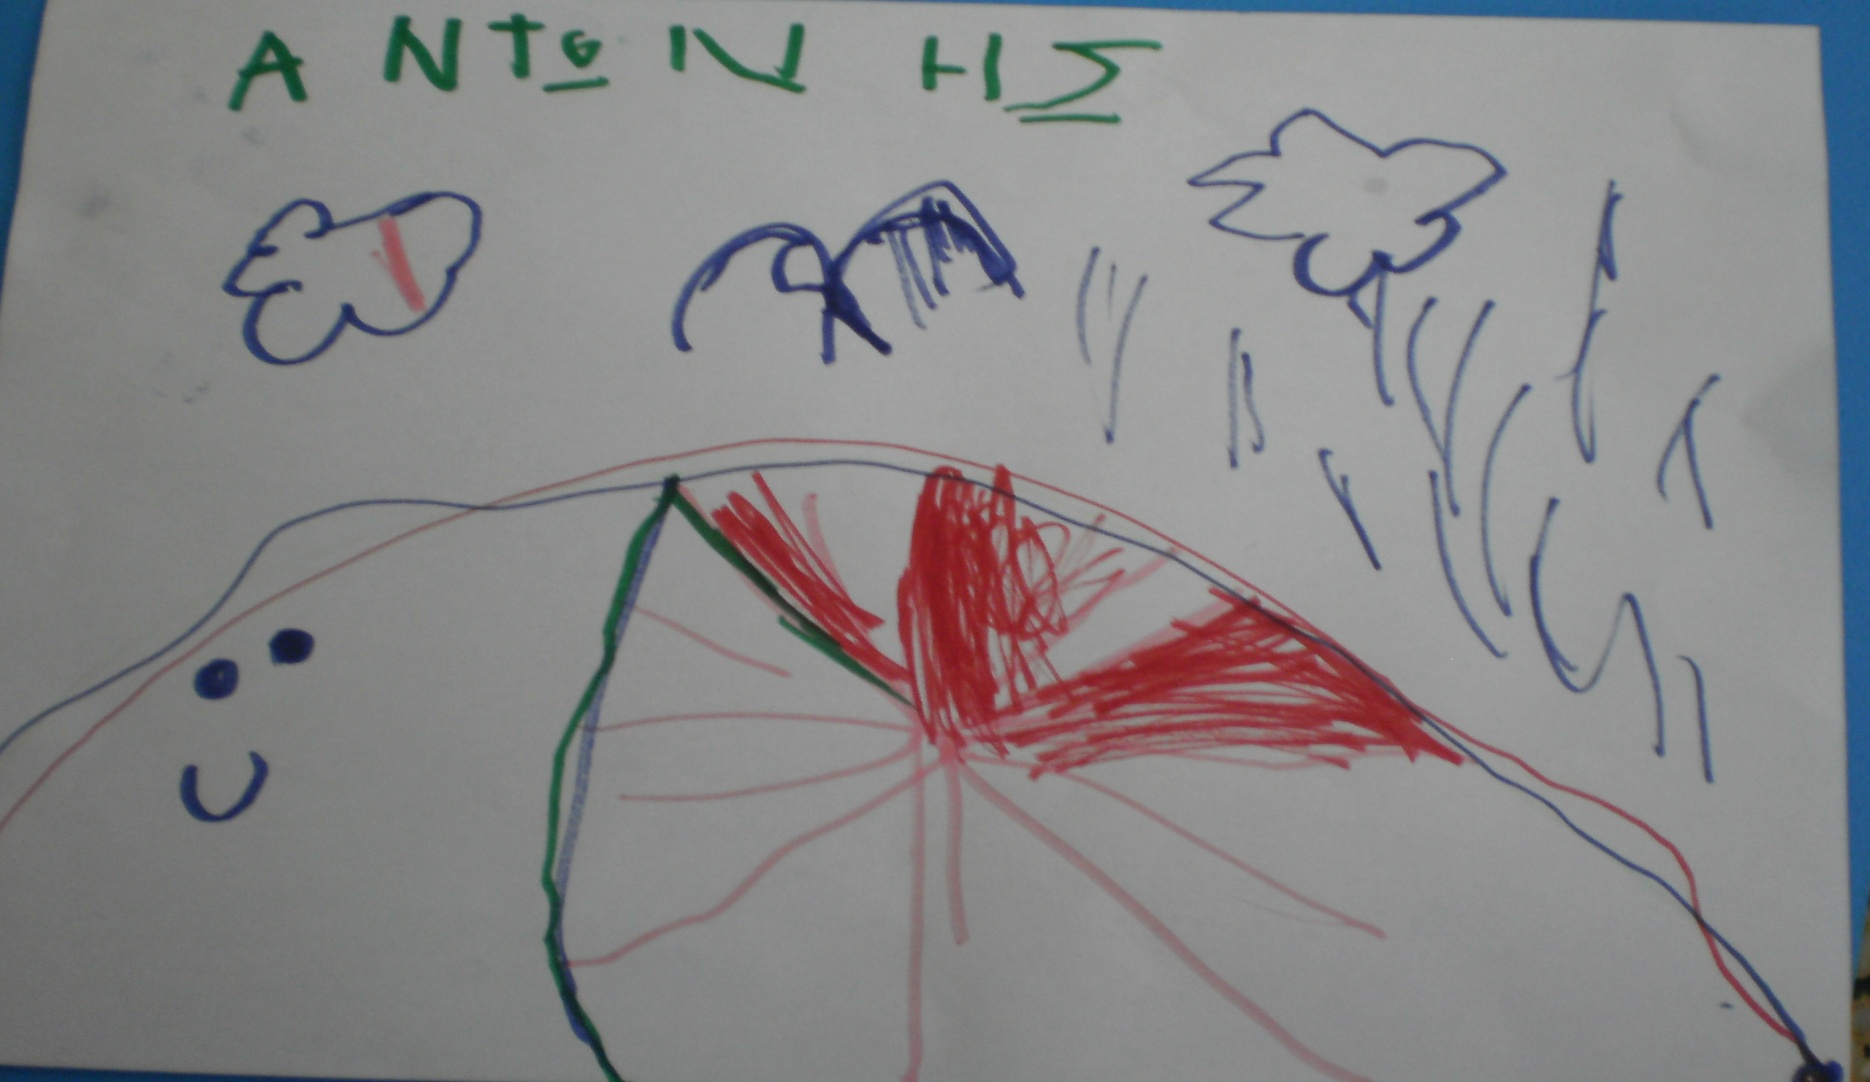 ΑΝΤΩΝΗΣ